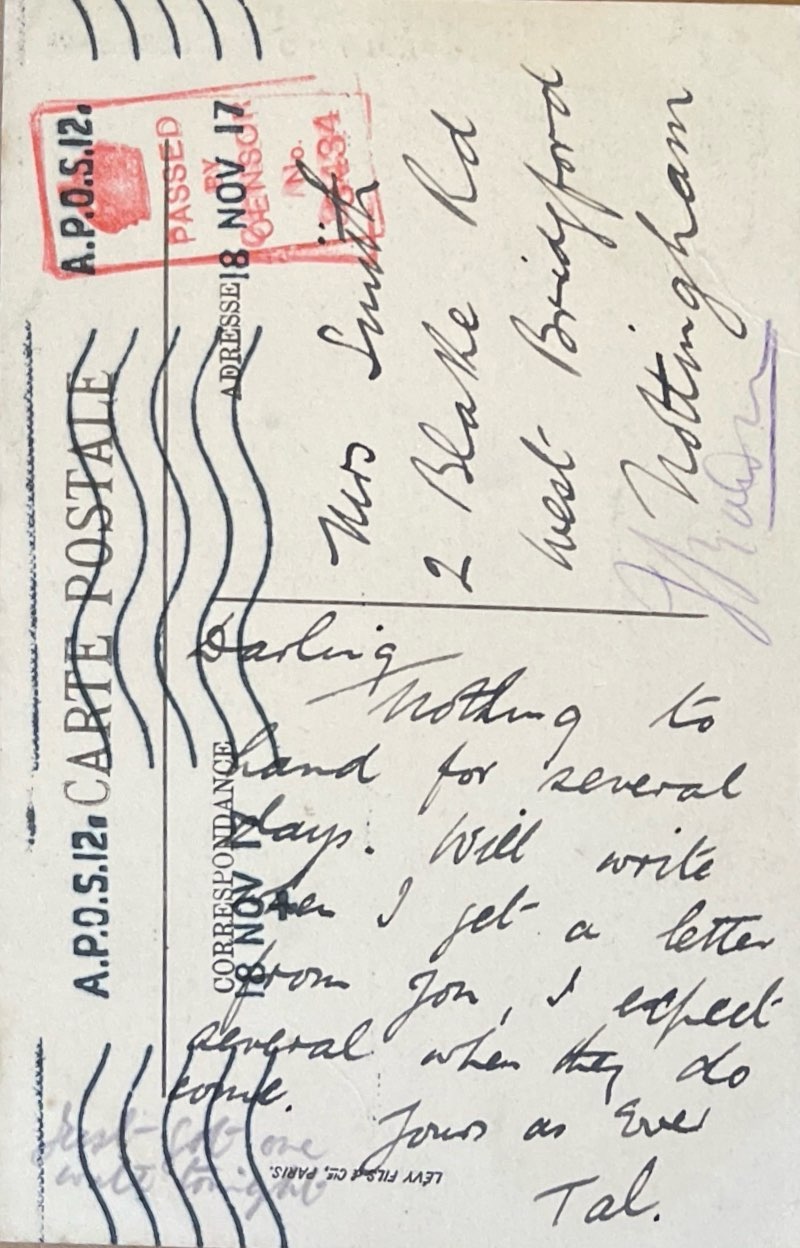 A.P.O.S.12. A.P.O.S.12.
CARTE POSTALE
CORRESPONDANCE ADRESSE
18 NOV 17 18 NOV 17
4
PASSED
BY
CENSOR
No.
Darling
Nothing to
hand for several
days. Will write
when I get a letter
from you, I expect
several when they do
come.
Yours as Ever
Tal.
Just got one
write tonight
Mrs Smith
2 Blake Rd
West Bridgford
Nottingham
LÉVY FILS & CIE, PARIS.